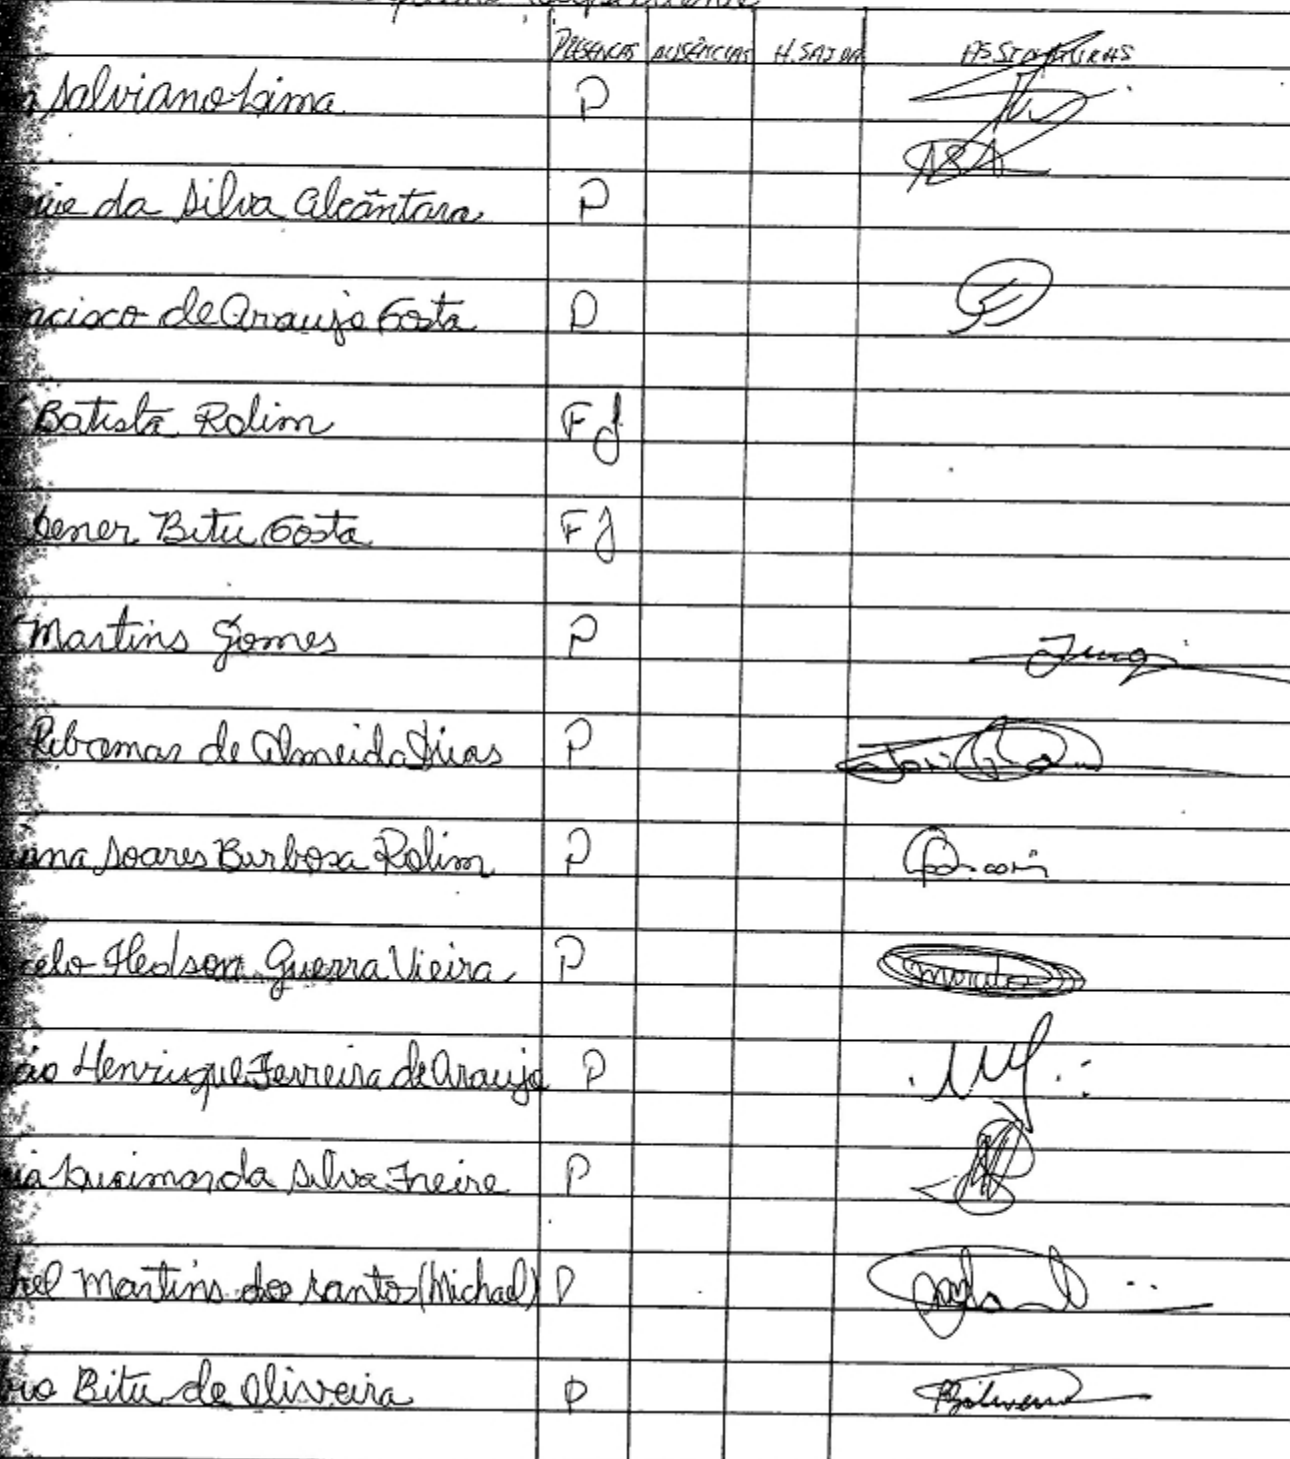 PRESENÇAS AUSÊNCIAS H. SAIDA ASSINATURAS
Salviano Lima P
da Silva Alcântara P
ncisco de Araujo Costa P
Batista Rolim FJ
bener Bitu Costa FJ
Martins Gomes P
Ribamar de Almeida Dias P
ana Soares Barbosa Rolim P
celo Hedson Guerra Vieira P
Henrique Ferreira de Araujo P
Lucimar da Silva Freire P
hel Martins dos Santos (Michael) P
Bitu de Oliveira P